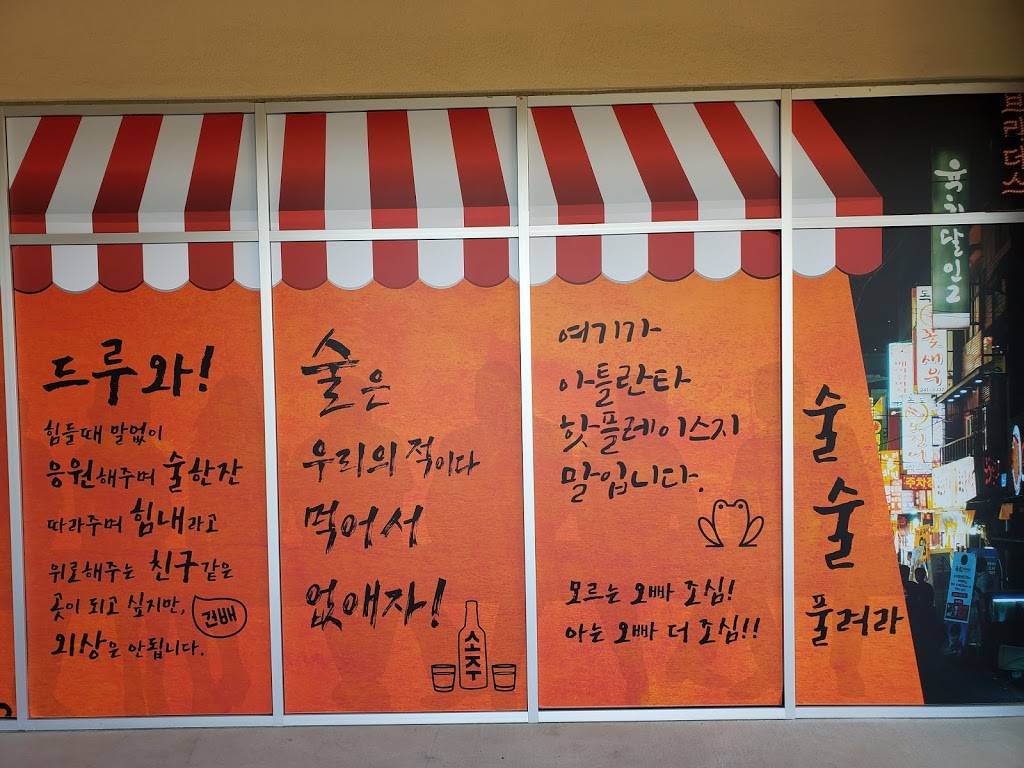 드루와!
힘들때 말없이
응원해주며 술한잔
따라주며 힘내라고
위로해주는 친구같은
곳이 되고 싶지만,
외상은 안됩니다.
건배
술은
우리의 적이다
먹어서
없애자!
소주
여기가
아틀란타
핫플레이스지
말입니다.
모르는 오빠 조심!
아는 오빠 더 조심!!
술
술
풀려라
주차장